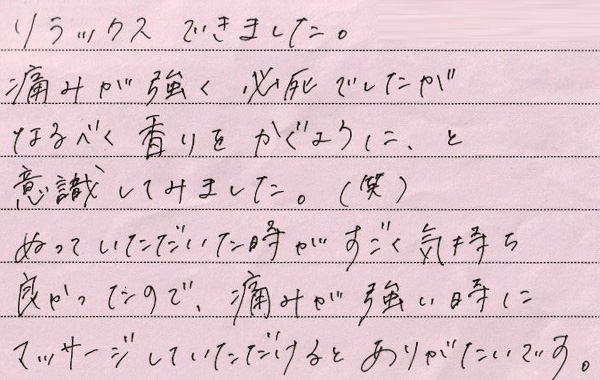 リラックスできました。
痛みが強く必死でしたが
なるべく香りをかぐように、と
意識してみました。(笑)
ぬっていただいた時がすごく気持ち
良かったので、痛みが強い時に
マッサージしていただけるとありがたいです。